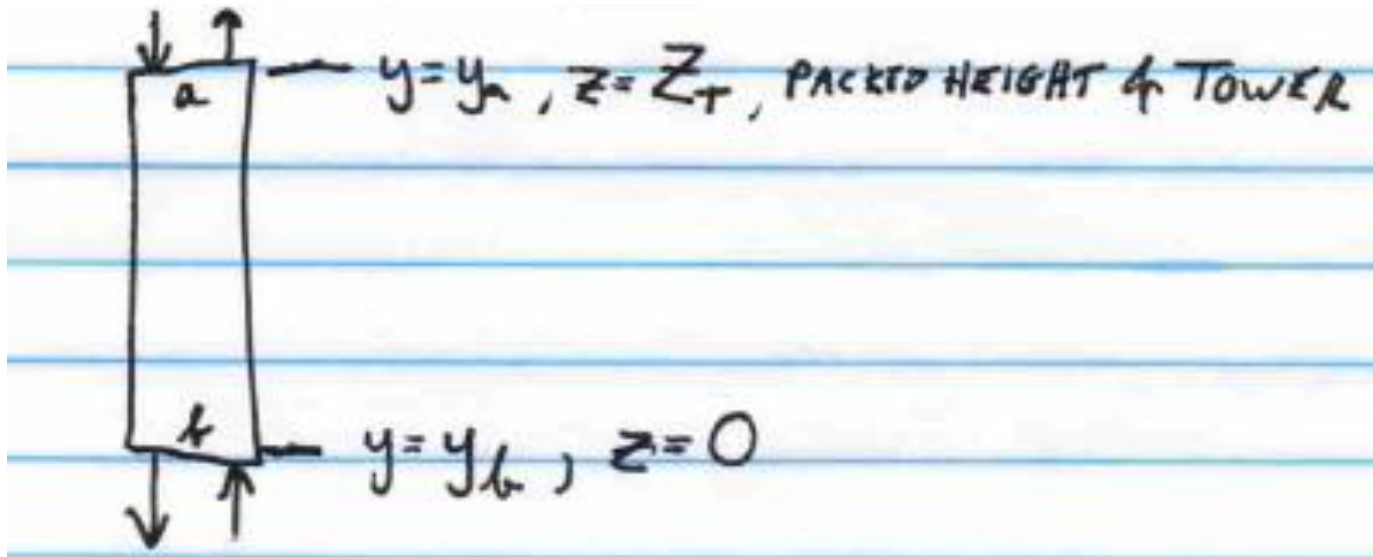 a — y = yₐ, z = Z_T, PACKED HEIGHT of TOWER
b — y = y_b, z = 0